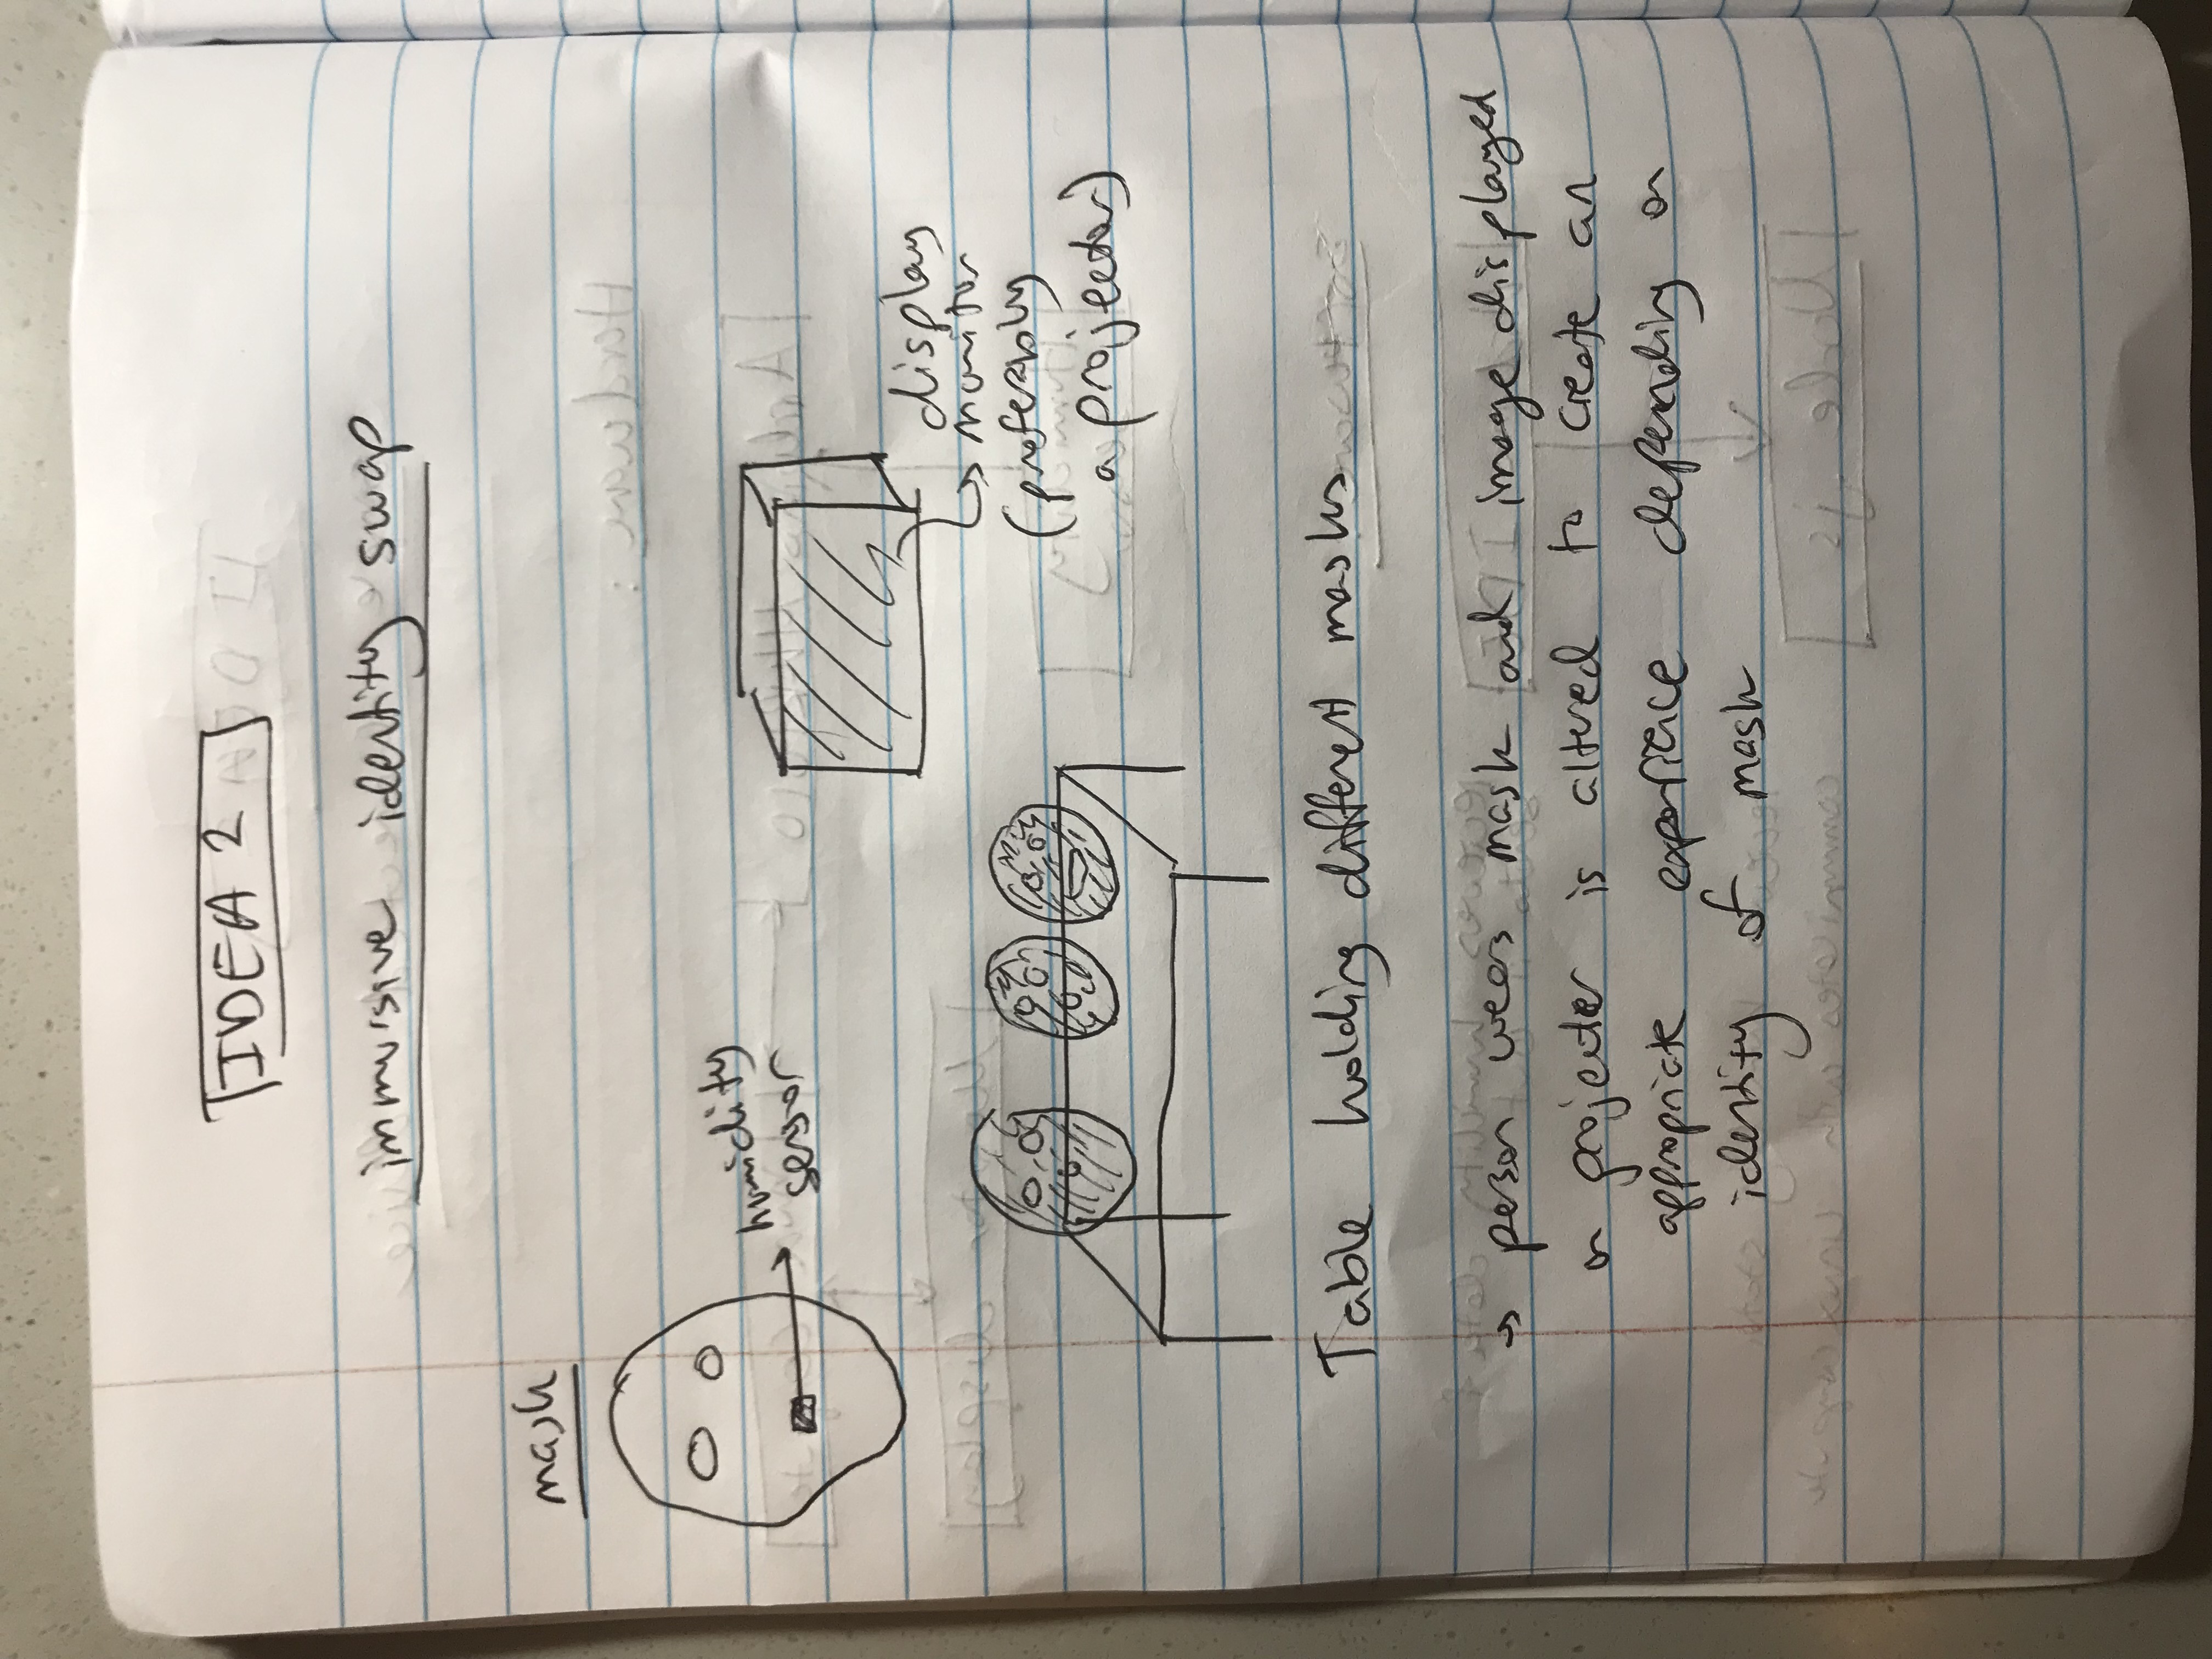 IDEA 2
immursive identity swap
mask
humidity
sensor
display
monitor
(preferably
a projector)
Table holding different masks
→ person wears mask and image displayed
on projector is altered to create an
appropriate experience depending on
identity of mask